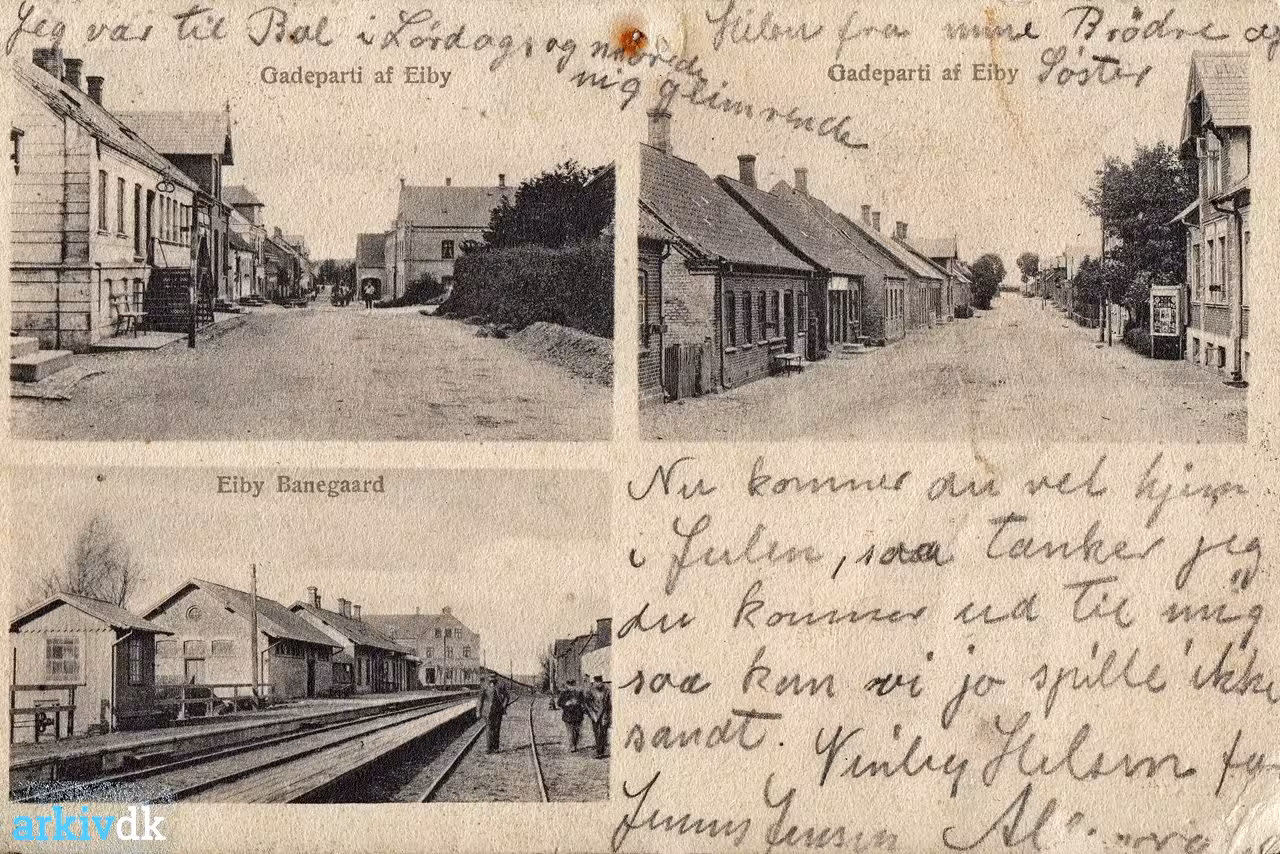 Jeg var til Bal i Lørdags og morede
mig glimrende
Hilsen fra mine Brödre og
Söster
Gadeparti af Eiby
Gadeparti af Eiby
Eiby Banegaard
Nu kommer du vel hjem
i Julen, saa tænker jeg
du kommer ud til mig
saa kan vi jo spille ikke
sandt. Hilsen
Jensen
arkivdk